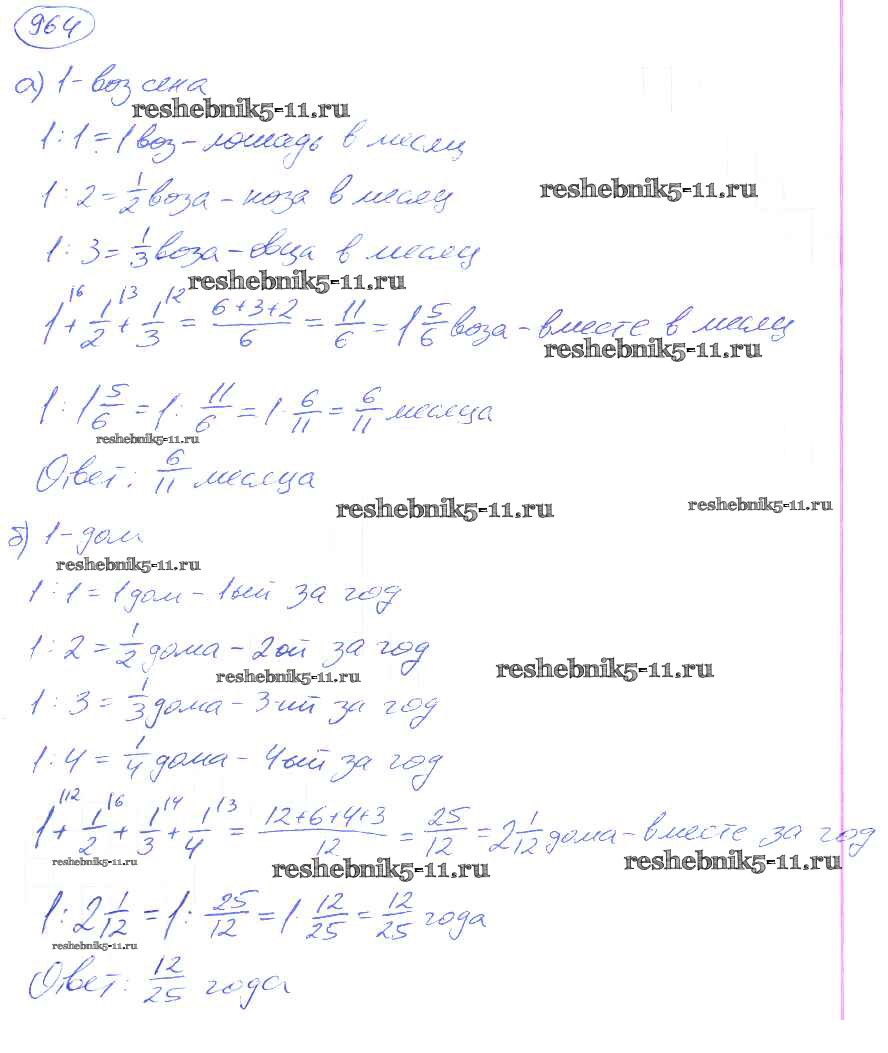 964
а) 1 - воз сена
reshebnik5-11.ru
1 : 1 = 1 воз - лошадь в месяц
1 : 2 = 1/2 воза - коза в месяц
reshebnik5-11.ru
1 : 3 = 1/3 воза - овца в месяц
reshebnik5-11.ru
1\6 + 1/2\3 + 1/3\2 = (6+3+2)/6 = 11/6 = 1 5/6 воза - вместе в месяц
reshebnik5-11.ru
1 : 1 5/6 = 1 : 11/6 = 1 · 6/11 = 6/11 месяца
reshebnik5-11.ru
Ответ: 6/11 месяца
reshebnik5-11.ru
reshebnik5-11.ru
б) 1 - дом
reshebnik5-11.ru
1 : 1 = 1 дом - 1ый за год
1 : 2 = 1/2 дома - 2ой за год
reshebnik5-11.ru
reshebnik5-11.ru
1 : 3 = 1/3 дома - 3-ий за год
1 : 4 = 1/4 дома - 4ый за год
1\12 + 1/2\6 + 1/3\4 + 1/4\3 = (12+6+4+3)/12 = 25/12 = 2 1/12 дома - вместе за год
reshebnik5-11.ru
reshebnik5-11.ru
reshebnik5-11.ru
1 : 2 1/12 = 1 : 25/12 = 1 · 12/25 = 12/25 года
reshebnik5-11.ru
Ответ: 12/25 года